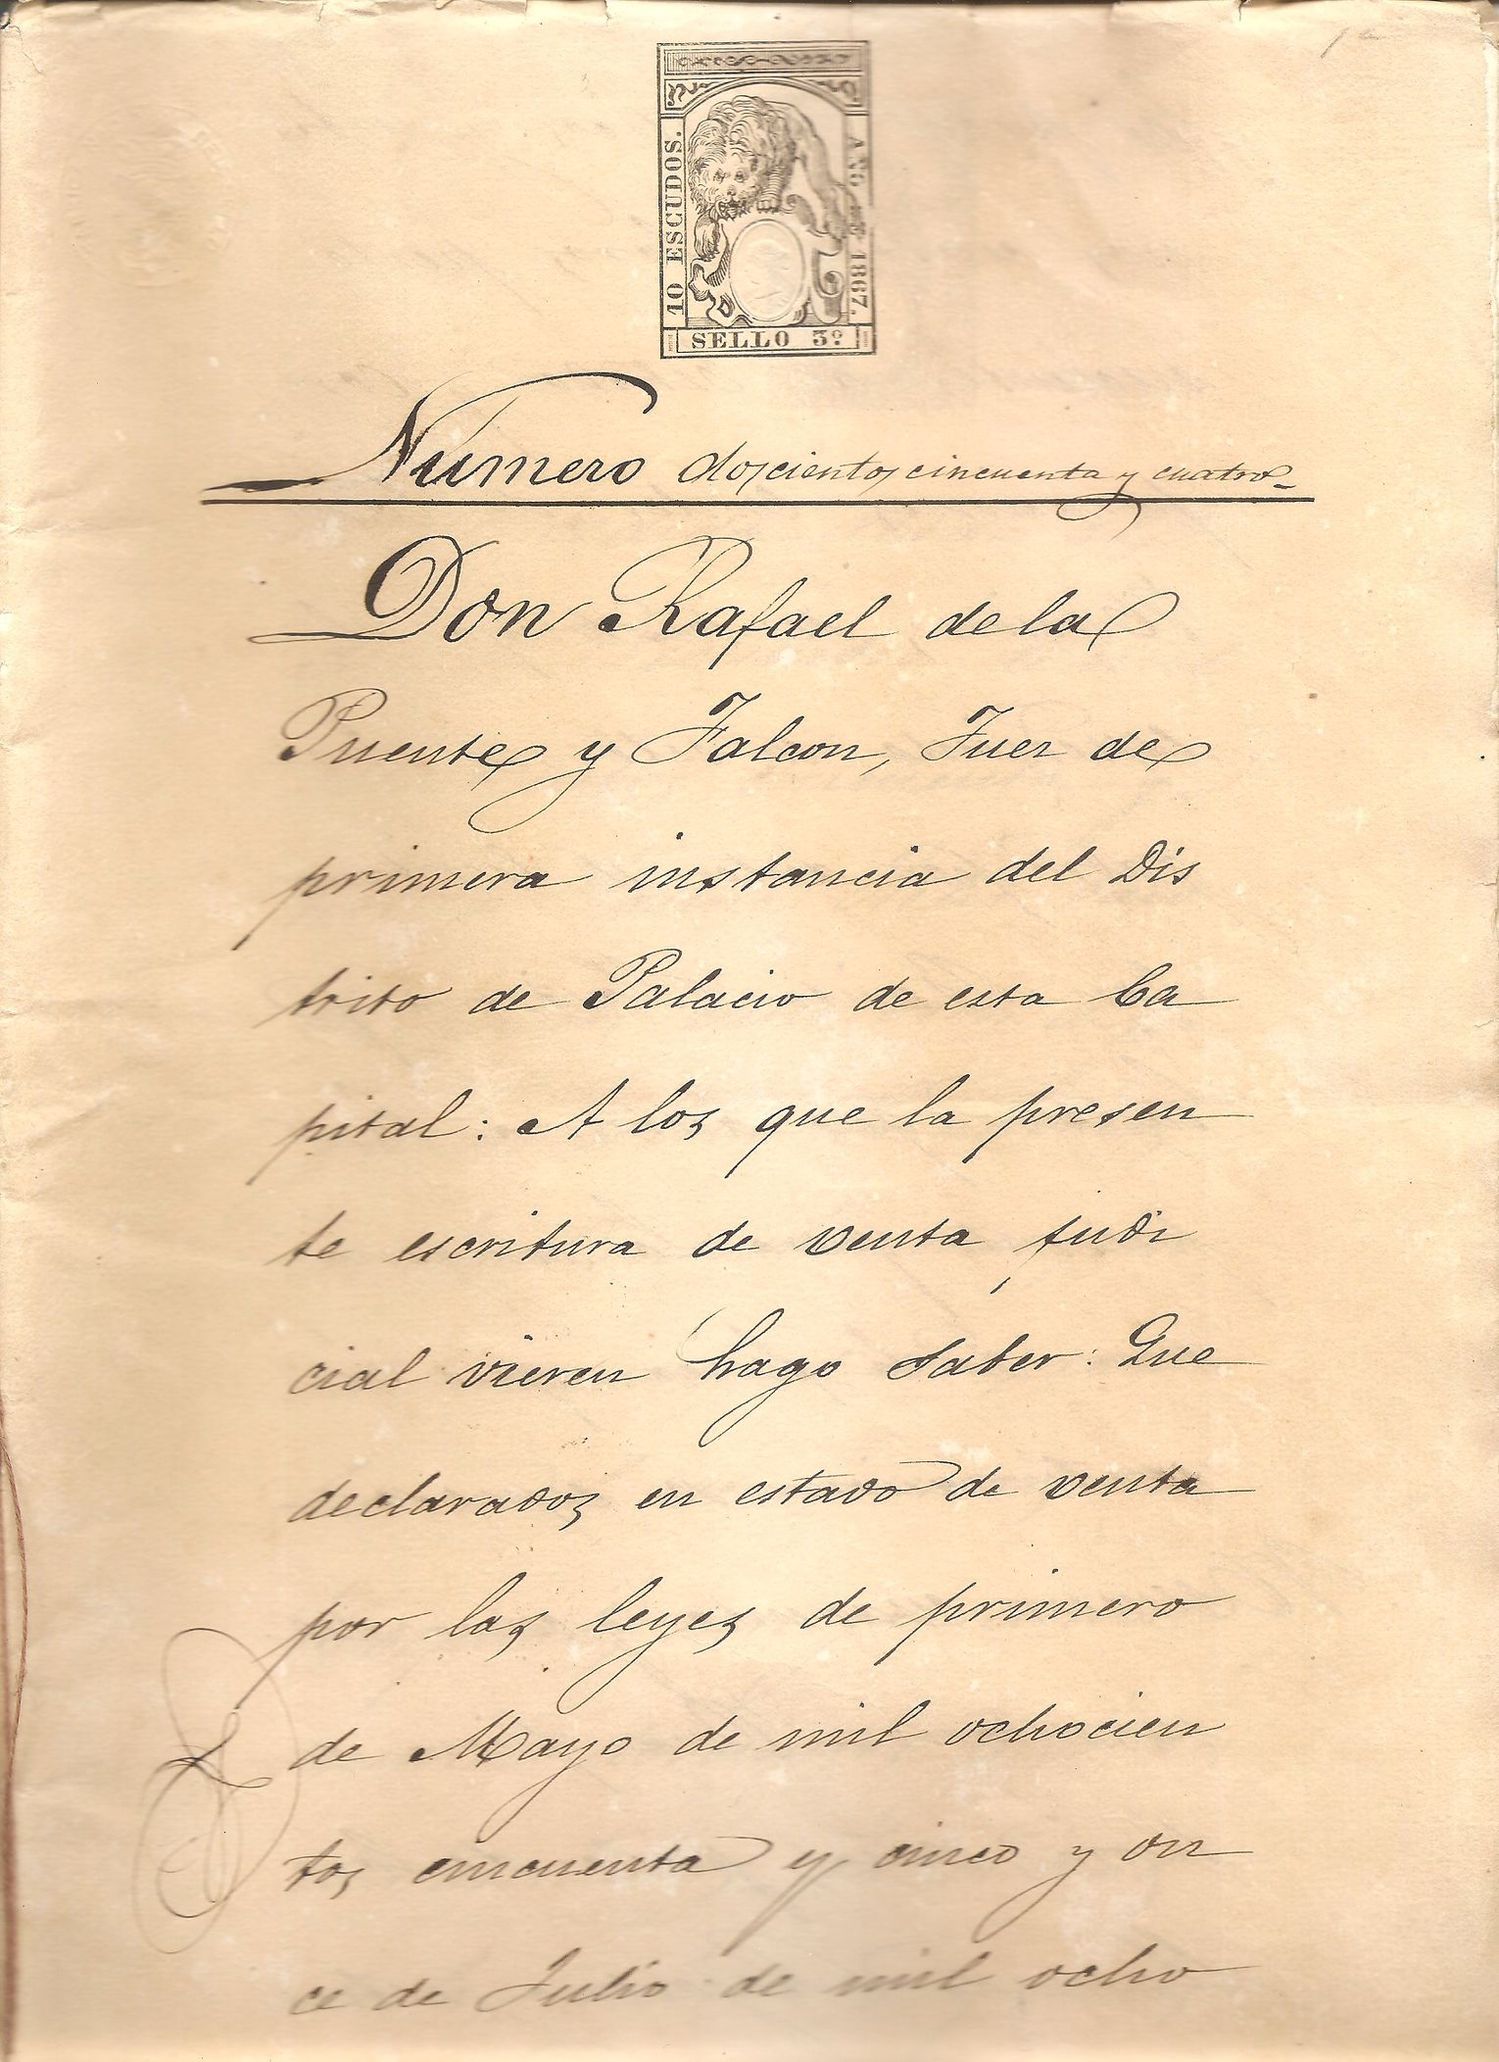 10 ESCUDOS.
AÑO DE 1867.
SELLO 3º
Numero doscientos cincuenta y cuatro-
Don Rafael de la
Puente y Falcon, Juez de
primera instancia del Dis
trito de Palacio de esta Ca
pital: A los que la presen
te escritura de venta judi
cial vieren hago saber: Que
declarados en estado de venta
por las leyes de primero
de Mayo de mil ochocien
tos cincuenta y cinco y on
ce de Julio de mil ocho